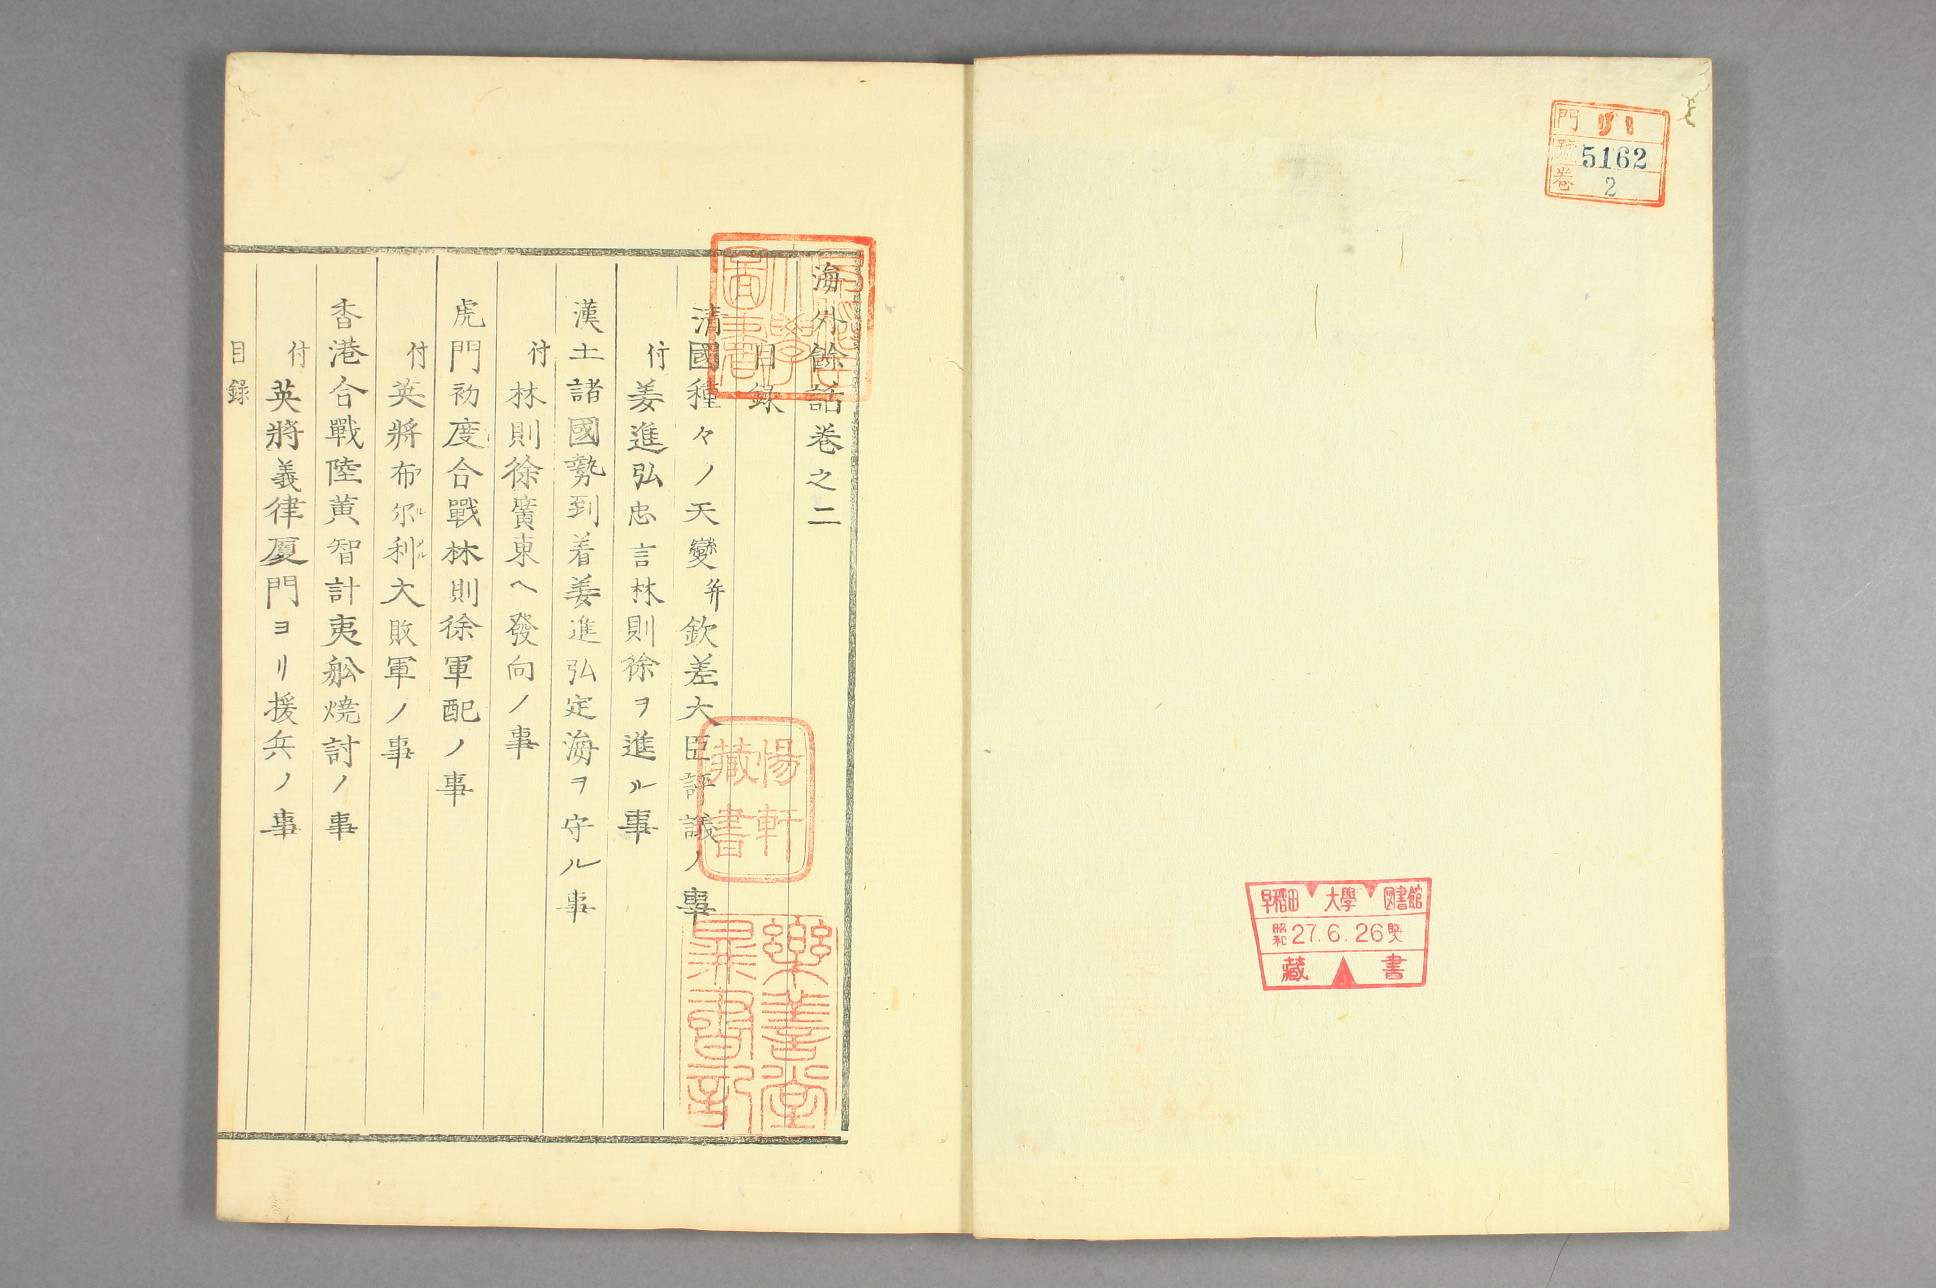 門
號 5162
巻 2
早稲田大學圖書館
昭和 27.6.26
藏書
海外餘話巻之二
目録
清國種々ノ天變并欽差大臣評議ノ事
付姜進弘忠言林則徐ヲ進ル事
漢土諸國勢到着姜進弘定海ヲ守ル事
付林則徐廣東ヘ發向ノ事
虎門初度合戰林則徐軍配ノ事
付英將布尓利大敗軍ノ事
香港合戰陸黄智計夷舩焼討ノ事
付英將義律厦門ヨリ援兵ノ事
目録
陽軒
藏書
樂善堂